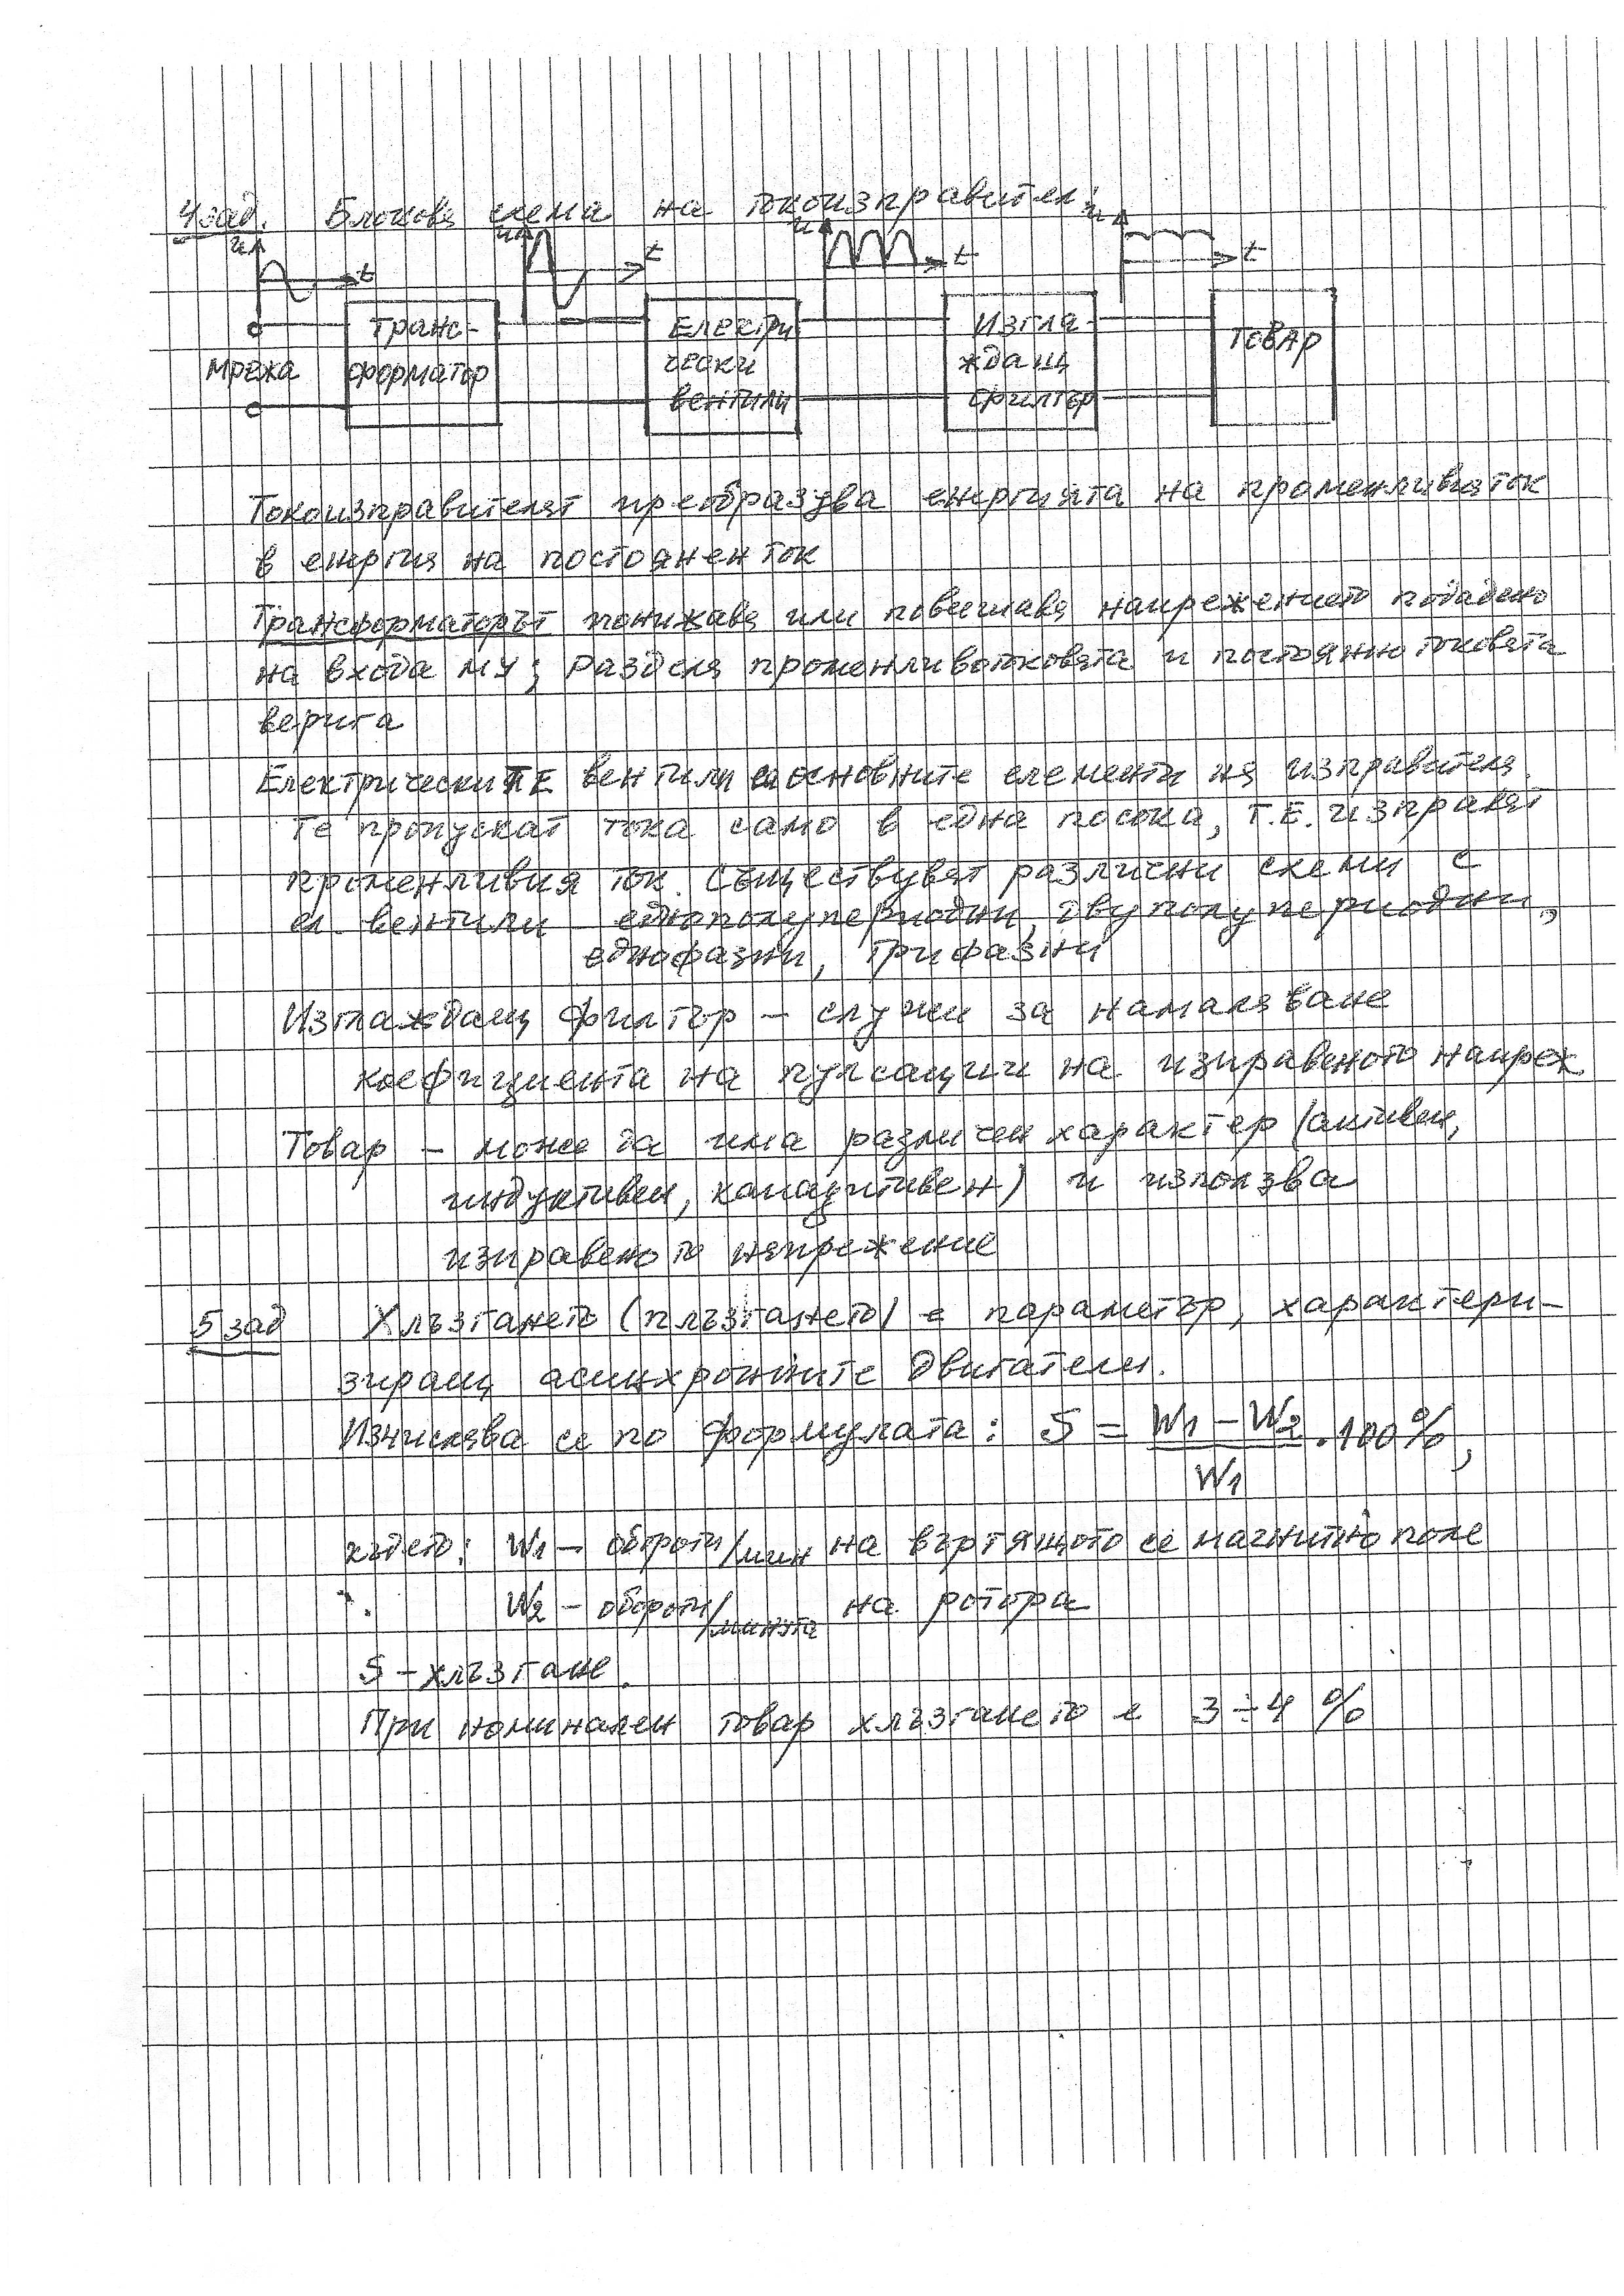 4 зад. Блокова схема на токоизправител:
u u u u
t t t t
Мрежа
Транс-
форматор
Електри
чески
вентили
Изгла-
ждащ
филтър
Товар
Токоизправителят преобразува енергията на променливия ток
в енергия на постоянен ток
Трансформаторът понижава или повишава напрежението подадено
на входа му; разделя променливотоковата и постояннотоковата
верига
Електрическите вентили са основните елементи на изправителя.
Те пропускат тока само в една посока, т.е. изправят
променливия ток. Съществуват различни схеми с
ел. вентили - еднополупериодни, двуполупериодни,
еднофазни, трифазни
Изглаждащ филтър - служи за намаляване
коефициента на пулсации на изправеното напреж.
Товар - може да има различен характер (активен,
индуктивен, капацитивен) и използва
изправеното напрежение
5 зад Хлъзгането (плъзгането) е параметър, характери-
зиращ асинхронните двигатели.
Изчислява се по формулата: S = W1 - W2 / W1 . 100%,
където: W1 - обороти/мин на въртящото се магнитно поле
W2 - обороти/минута на ротора
S - хлъзгане.
При номинален товар хлъзгането е 3÷4 %